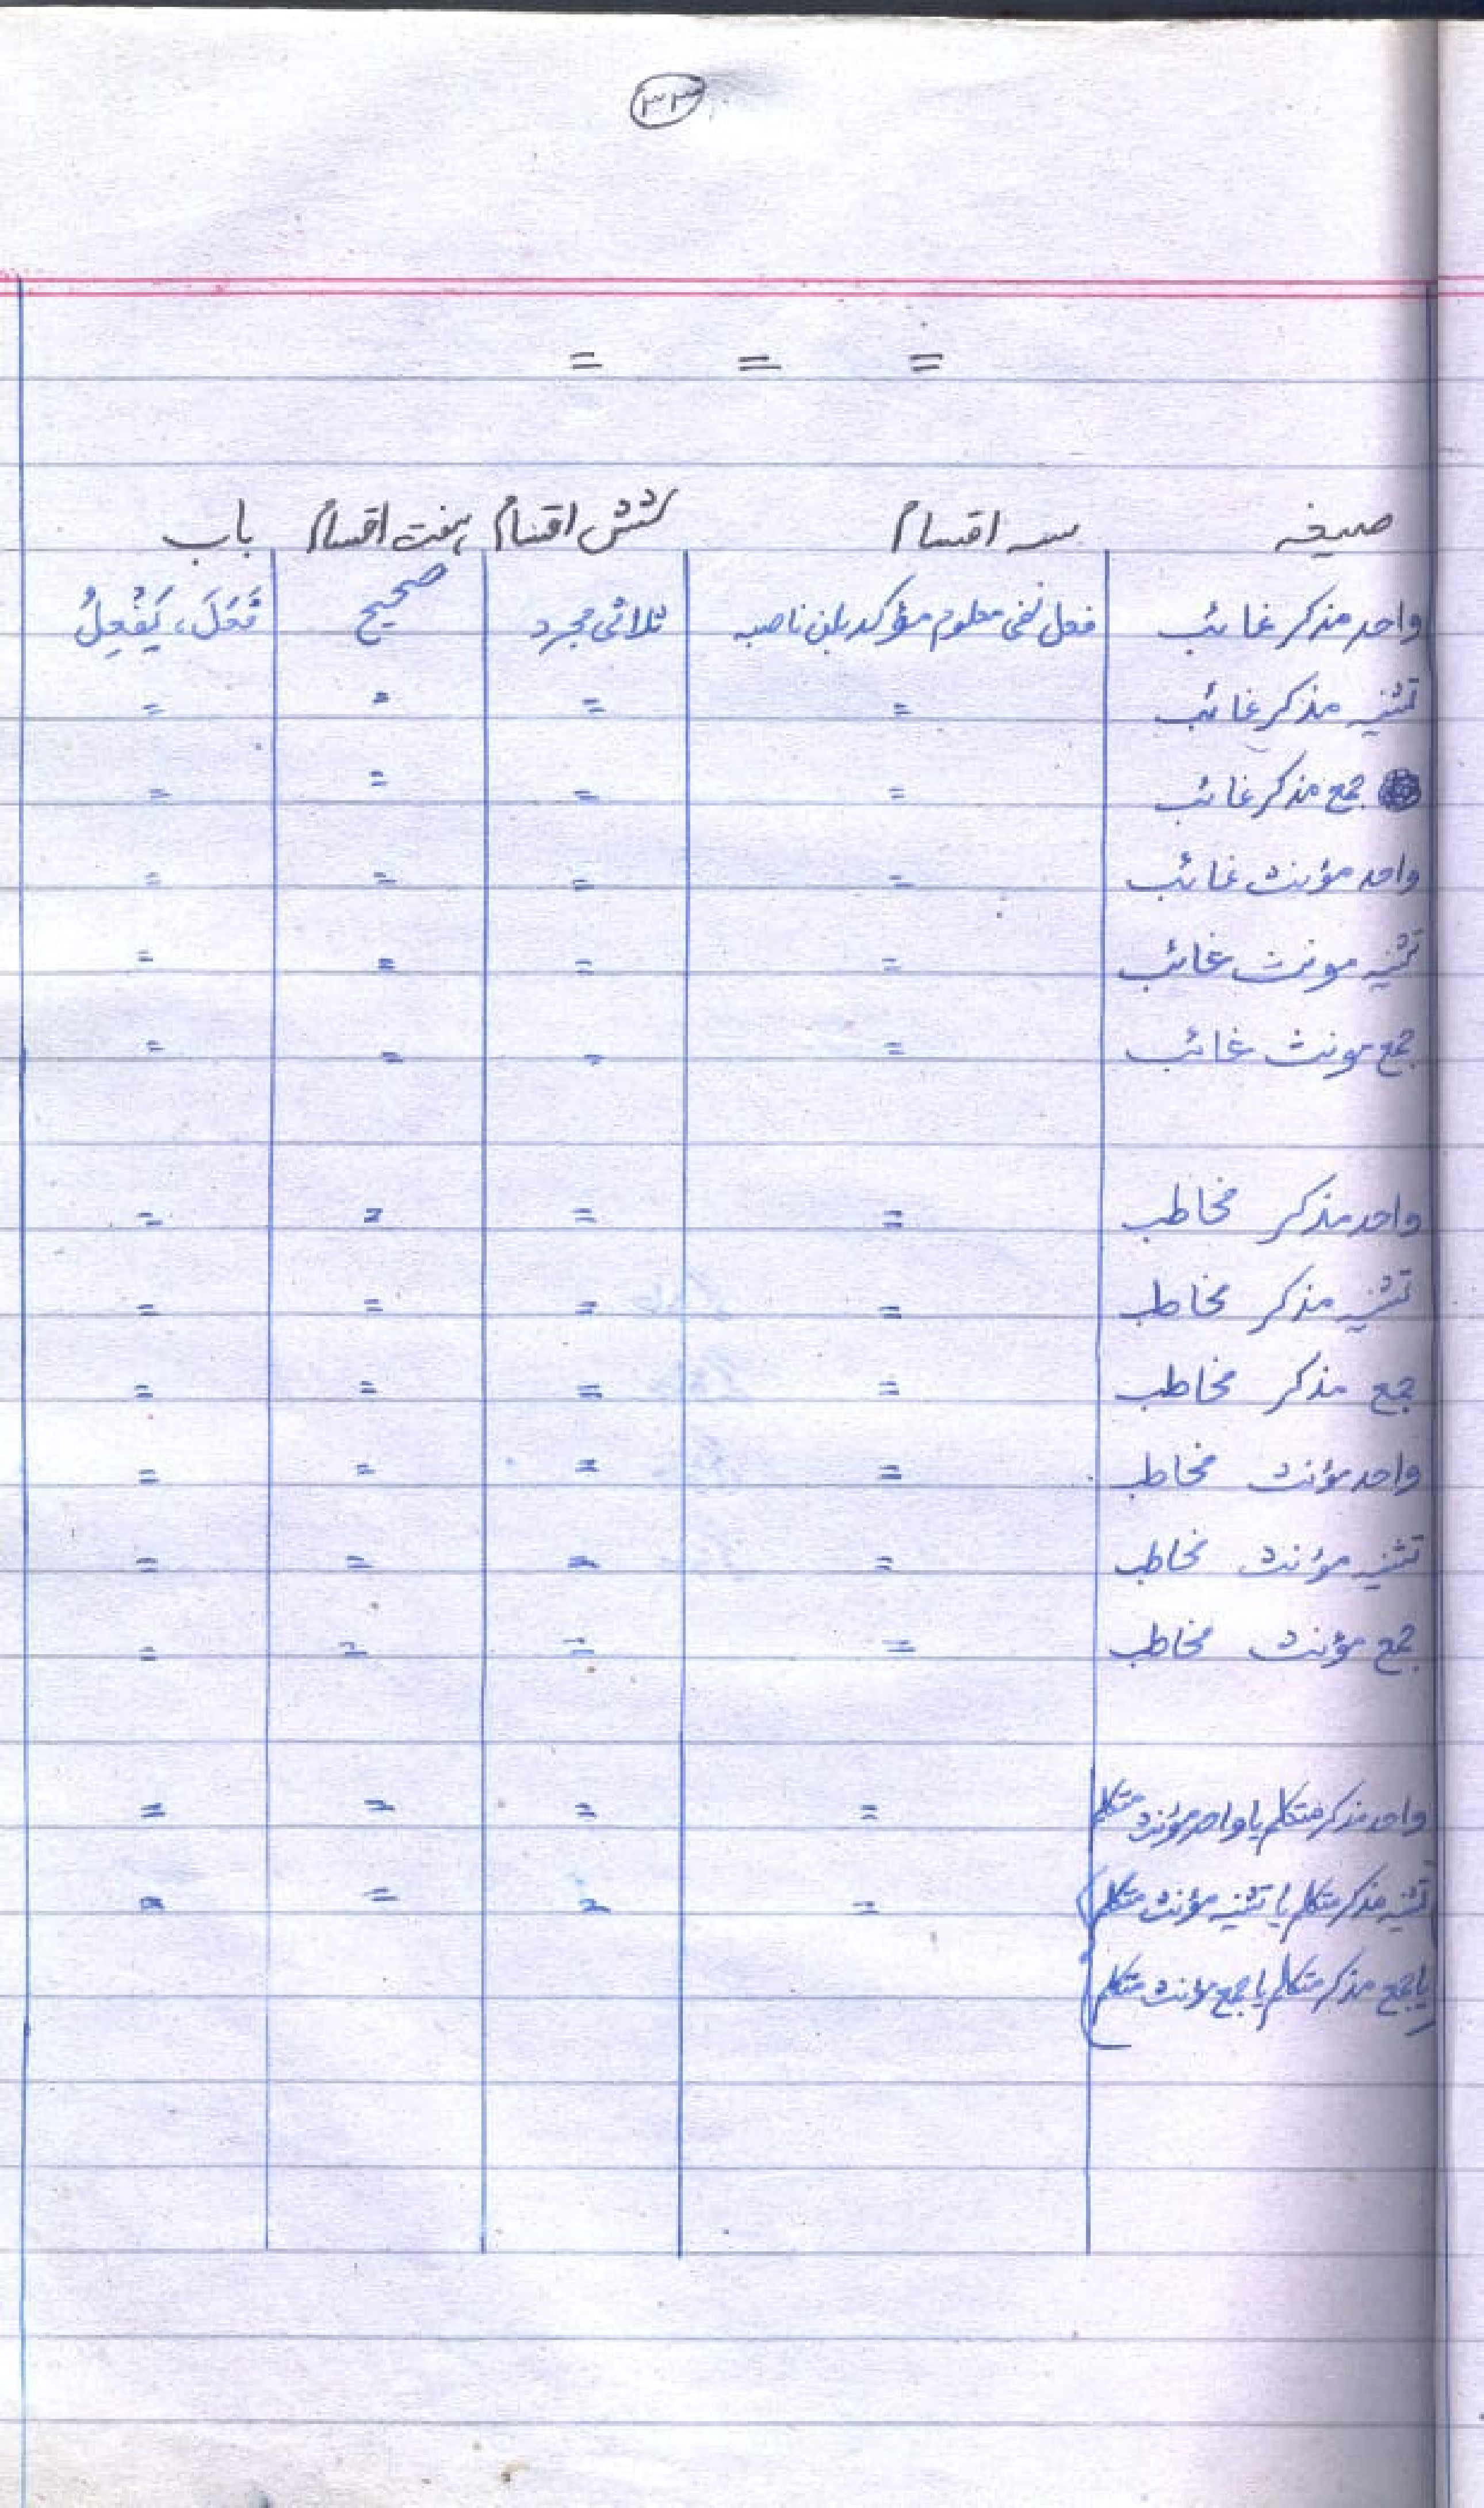 ۳۳
= = =
صیغہ سہ اقسام شش اقسام ہفت اقسام باب
واحد مذکر غائب فعل نفی معلوم مؤکد بلن ناصبہ ثلاثی مجرد صحیح فَعَلَ، يَفْعِلُ
تثنیہ مذکر غائب = = = =
جمع مذکر غائب = = = =
واحد مؤنث غائب = = = =
تثنیہ مونث غائب = = = =
جمع مونث غائب = = = =
واحد مذکر مخاطب = = = =
تثنیہ مذکر مخاطب = = = =
جمع مذکر مخاطب = = = =
واحد مؤنث مخاطب = = = =
تثنیہ مؤنث مخاطب = = = =
جمع مؤنث مخاطب = = = =
واحد مذکر متکلم یا واحد مؤنث متکلم = = = =
تثنیہ مذکر متکلم یا تثنیہ مؤنث متکلم = = = =
یا جمع مذکر متکلم یا جمع مؤنث متکلم